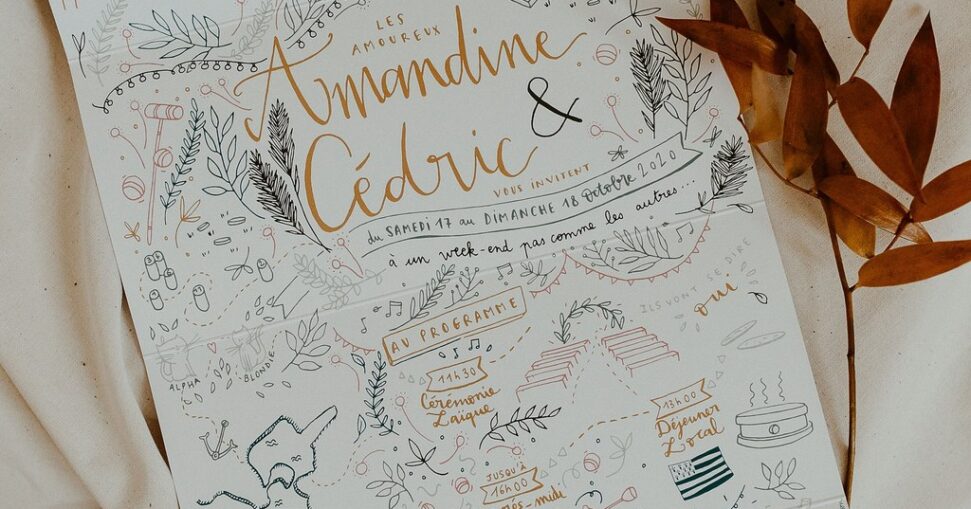 LES
AMOUREUX
Amandine
&
Cédric
VOUS INVITENT
du SAMEDI 17 au DIMANCHE 18 Octobre 2020
à un week-end pas comme les autres...
AU PROGRAMME
ILS VONT SE DIRE
oui
ALPHA
BLONDIE
11H30
Cérémonie
Laïque
13H00
Déjeuner
Local
JUSQU'À
16H00